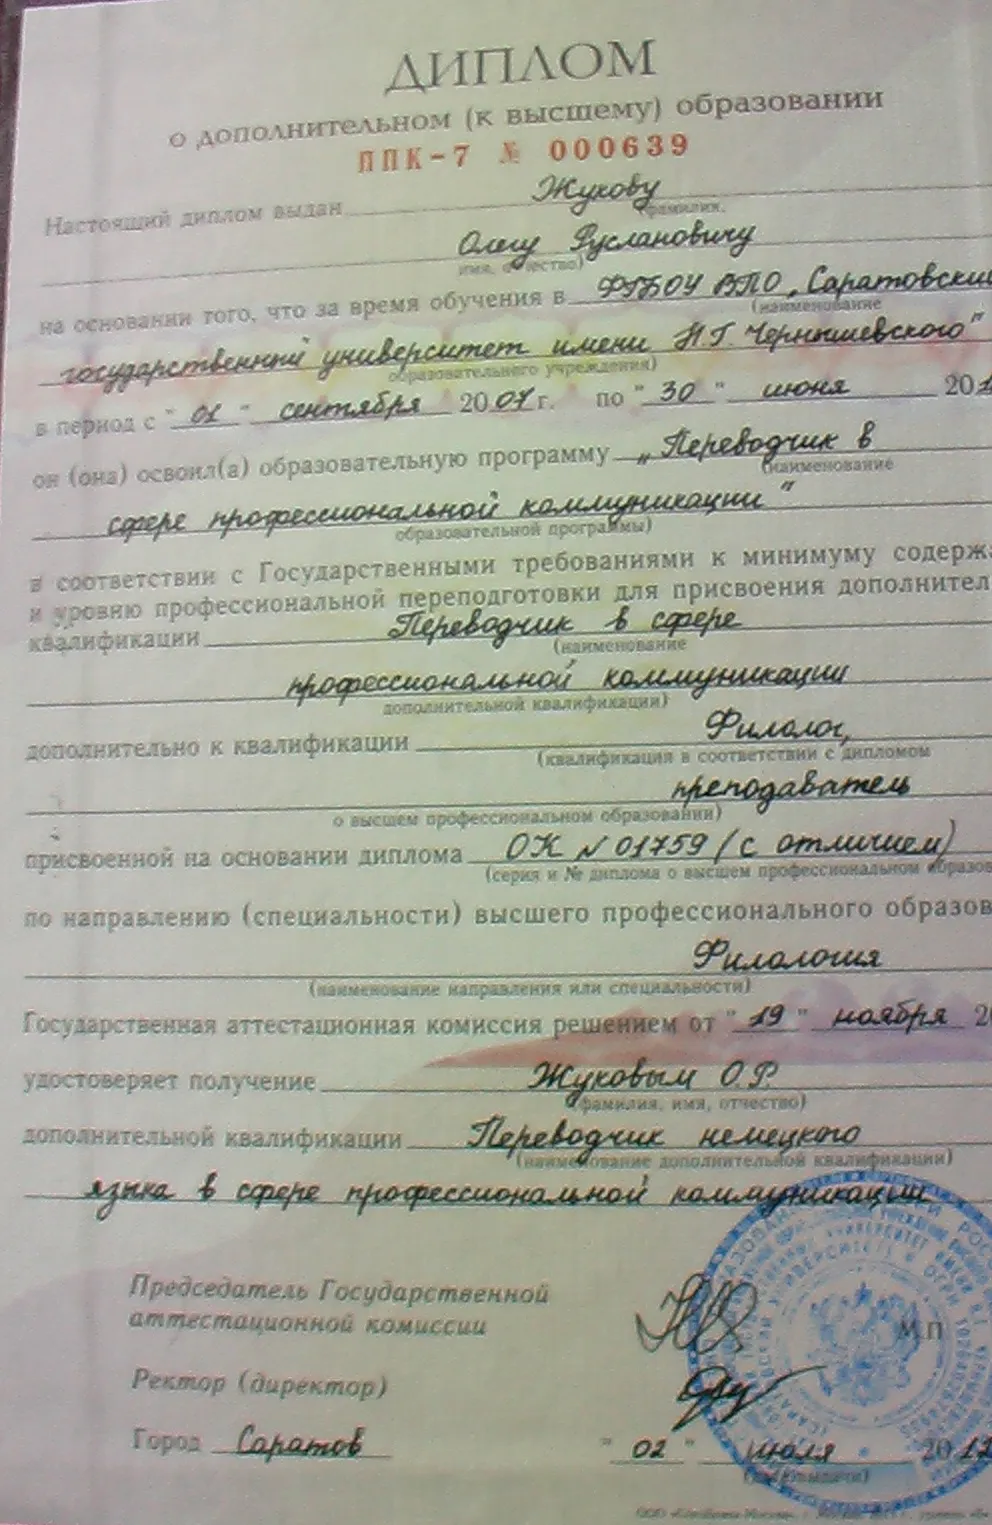 ДИПЛОМ
о дополнительном (к высшему) образовании
ППК-7 № 000639
Настоящий диплом выдан Жукову
(фамилия,
Олегу Руслановичу
имя, отчество)
на основании того, что за время обучения в ФГБОУ ВПО „Саратовский
(наименование
государственный университет имени Н.Г. Чернышевского"
образовательного учреждения)
в период с "01" сентября 2007 г. по "30" июня 201
он (она) освоил(а) образовательную программу „Переводчик в
(наименование
сфере профессиональной коммуникации"
образовательной программы)
в соответствии с Государственными требованиями к минимуму содержа
и уровню профессиональной переподготовки для присвоения дополнител
квалификации Переводчик в сфере
(наименование
профессиональной коммуникации
дополнительной квалификации)
дополнительно к квалификации Филолог,
(квалификация в соответствии с дипломом
преподаватель
о высшем профессиональном образовании)
присвоенной на основании диплома ОК № 01759 (с отличием)
(серия и № диплома о высшем профессиональном образов
по направлению (специальности) высшего профессионального образов
Филология
(наименование направления или специальности)
Государственная аттестационная комиссия решением от "19" ноября 20
удостоверяет получение Жуковым О.Р.
(фамилия, имя, отчество)
дополнительной квалификации Переводчик немецкого
(наименование дополнительной квалификации)
языка в сфере профессиональной коммуникации
Председатель Государственной
аттестационной комиссии
М.П
Ректор (директор)
Город Саратов "02" июля 2012